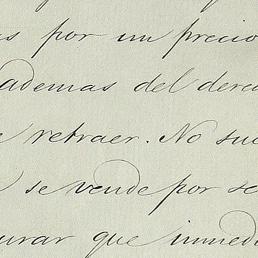 as por un precio
ademas del derec
e retraer. No suc
se vende por se
urar que inmedi